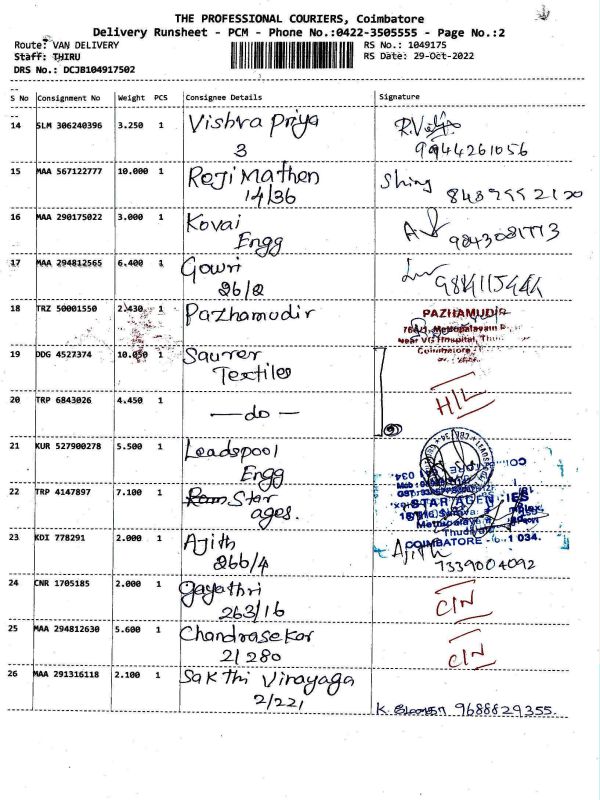 THE PROFESSIONAL COURIERS, Coimbatore
Delivery Runsheet - PCM - Phone No.:0422-3505555 - Page No.:2
Route: VAN DELIVERY
RS No.: 1049175
Staff: THIRU
RS Date: 29-Oct-2022
DRS No.: DCJB104917502
S No Consignment No Weight PCS Consignee Details Signature
14 SLM 306240396 3.250 1 Vishva Priya
3
9944261056
15 MAA 567122777 10.000 1 Roji Mathen
14/36
16 MAA 290175022 3.000 1 Kovai
Engg
17 MAA 294812565 6.400 1 Gowri
26/2
18 TRZ 50001550 2.430 1 Pazhamudir PAZHAMUDIR
Near VG Hospital,
Coimbatore
19 DDG 4527374 10.050 1 Saurer
Textiles
20 TRP 6843026 4.450 1 — do — H/L
21 KUR 527900278 5.500 1 Leadspool
Engg
22 TRP 4147897 7.100 1 Star STAR AGENCIES
ages.
COIMBATORE
23 KDI 778291 2.000 1 Ajith Ajith
266/4 7339004092
24 CNR 1705185 2.000 1 Gayathri
263/16 C/N
25 MAA 294812630 5.600 1 Chandrasekar
2/280 C/N
26 MAA 291316118 2.100 1 Sakthi Vinayaga
2/221
9688829355.